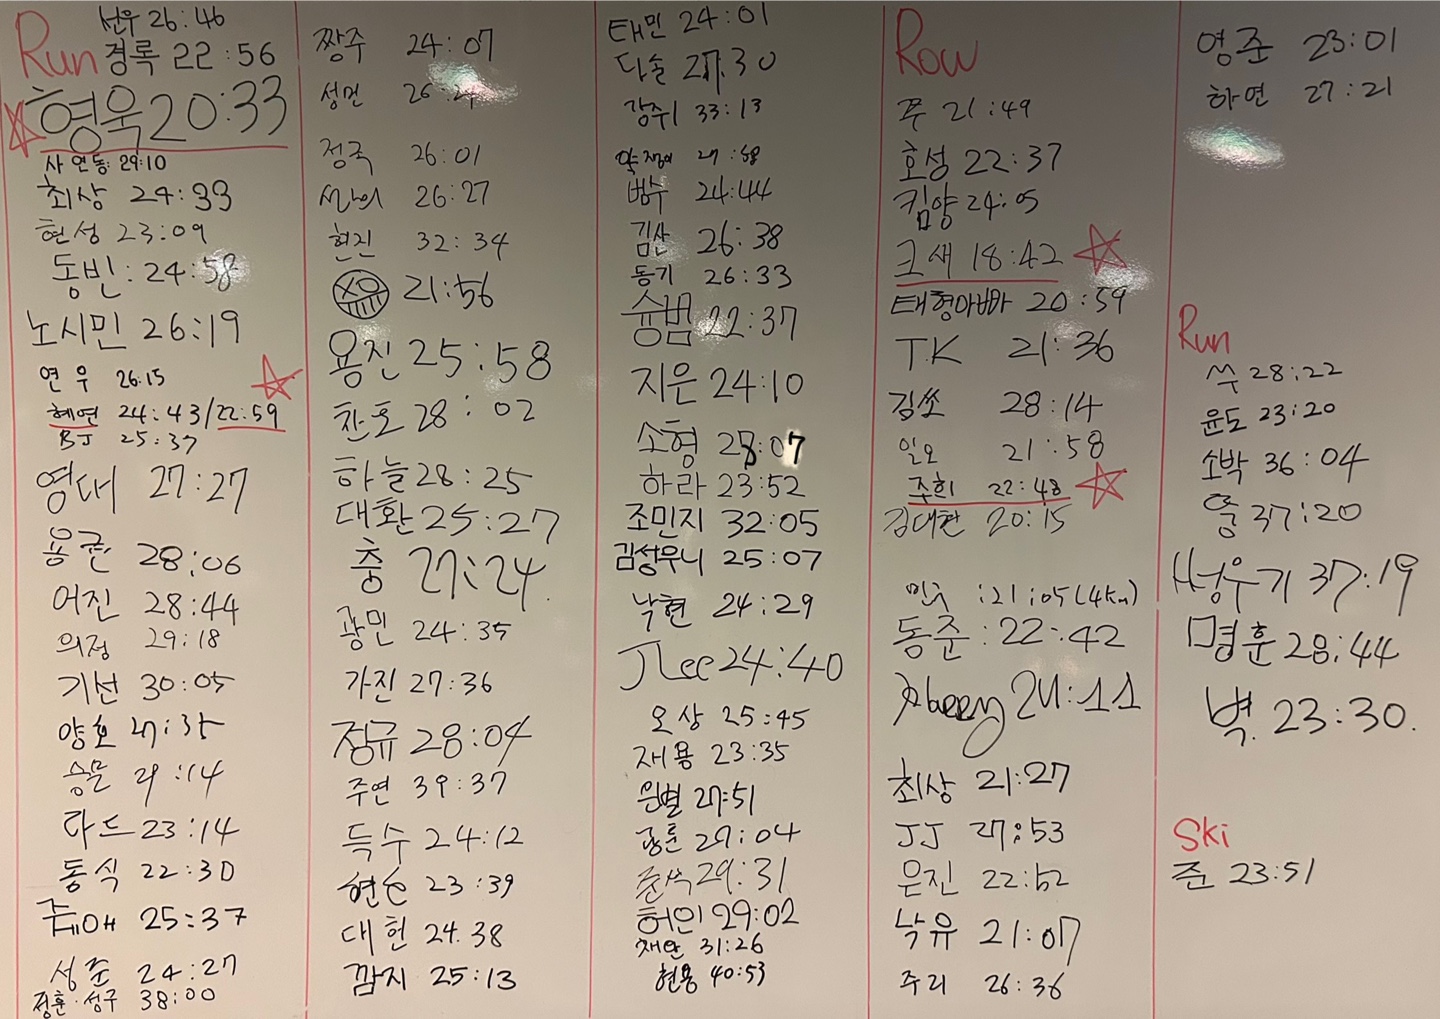 Run
선우 26:46
경록 22:56
형욱 20:33
사연동: 29:10
최상 24:33
현성 23:09
동빈: 24:58
노시민 26:19
연우 26.15
혜연 24:43/22:59
BJ 25:37
영대 27:27
용균 28:06
어진 28:44
의정 29:18
기선 30:05
양호 27:35
승문 29:14
라드 23:14
동식 22:30
25:37
성준 24:27
정훈·성구 38:00
짱주 24:07
성민
정국 26:01
26:27
현진 32:34
XO 21:56
용진 25:58
찬호 28:02
하늘 28:25
대환 25:27
충 27:24
광민 24:35
가진 27:36
정규 28:04
주연 39:37
득수 24:12
23:39
대헌 24.38
깜지 25:13
태민 24:01
다솔 27.30
강쥐 33:13
27:58
범수 24:44
김산 26:38
동기 26:33
슝범 22:37
지은 24:10
소형
하라 23:52
조민지 32:05
김성우니 25:07
낙현 24:29
JLee 24:40
오상 25:45
재용 23:35
은별 27:51
29:04
준석 29:31
허인 29:02
재안 31:26
현용 40:53
Row
쭈 21:49
호성 22:37
킴양 24:05
크새 18:42
태형아빠 20:59
T.K 21:36
김쏘 28:14
일오 21:58
주희 22:48
김대현 20:15
민수 :21:05(4km)
동준: 22:42
최상 21:27
JJ 27:53
은진 22:52
낙유 21:07
주리 26:36
영준 23:01
하연 27:21
Run
쑤 28:22
윤도 23:20
소박 36:04
37:20
성우기 37:19
명훈 28:44
벽. 23:30.
Ski
준 23:51